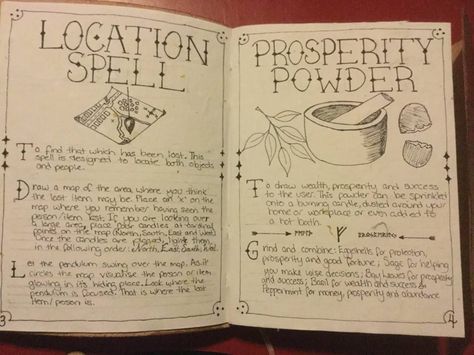 LOCATION
SPELL
To find that which has been lost. This
spell is designed to locate both objects
and people.
Draw a map of the area where you think
the lost item may be. Place an 'x' on the
map where you remember having seen the
person/item last. If you are looking over
a large area, place four candles at cardinal
points on the map (North, South, East and West).
Once the candles are placed, light them,
in the following order: North, East, South, West.
Let the pendulum swing over the map. As it
circles the map visualise the person or item
glowing in its hiding place. Look where the
pendulum is focused. That is where the lost
item/person is.
3
PROSPERITY
POWDER
To draw wealth, prosperity and success
to the user. This powder can be sprinkled
onto a burning candle, dusted around your
home or workplace or even added to
a hot bath.
Grind and combine: Eggshells for protection,
prosperity and good fortune; Sage for helping
you make wise decisions; Bay Leaves for prosperity
and success; Basil for wealth and success &
Peppermint for money, prosperity and abundance
4